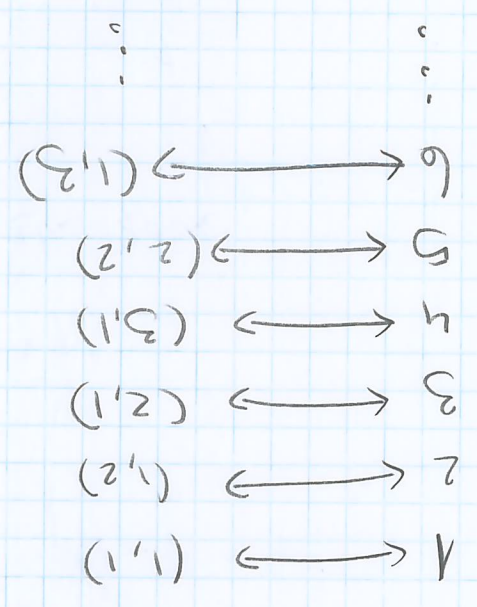 1 ↔ (1,1)
2 ↔ (1,2)
3 ↔ (2,1)
4 ↔ (3,1)
5 ↔ (2,2)
6 ↔ (1,3)
⋮ ⋮